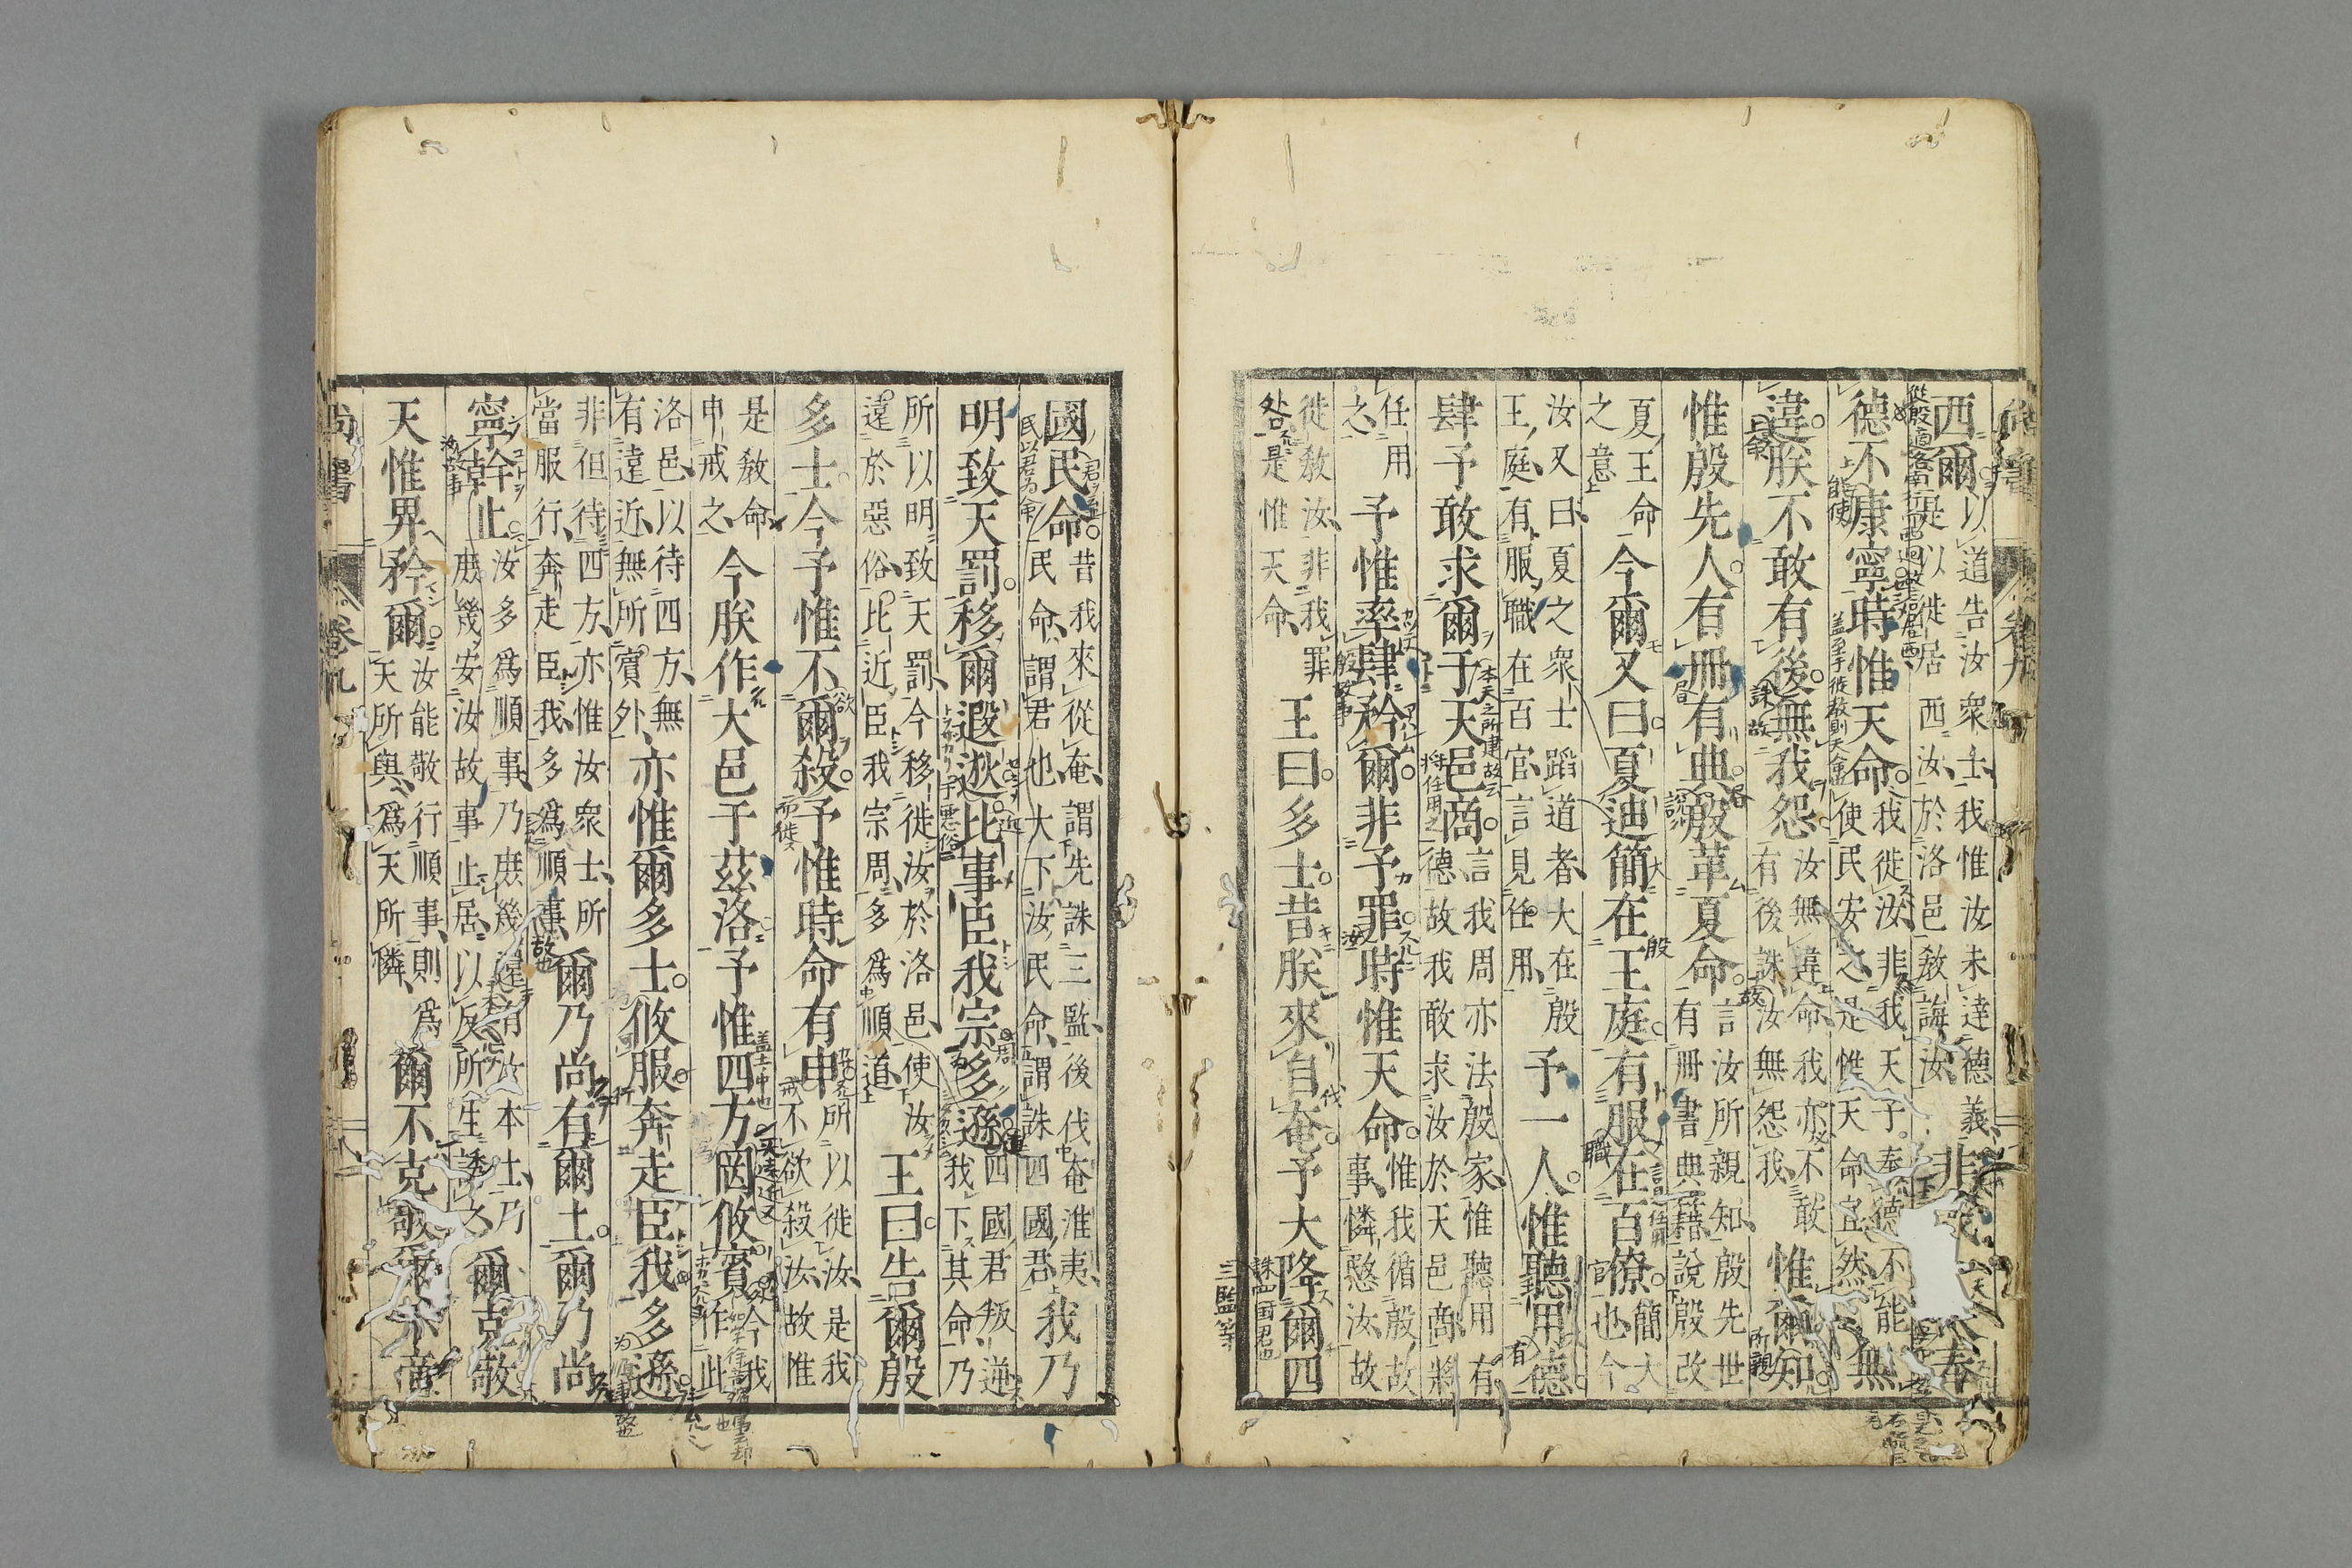 西爾以道告汝衆士我惟汝未達德義
是以徙居西汝於洛邑敎誨汝非我一人奉
德不康寧時惟天命我徙汝非我天子奉德不能
使民安之是惟天命宜然無
違朕不敢有後無我怨汝無違命我亦不敢
有後誅汝無怨我惟爾知
惟殷先人有冊有典殷革夏命言汝所親知殷先世
有冊書典籍說殷改
夏王命
之意今爾又曰夏迪簡在王庭有服在百僚簡大
也今
汝又曰夏之衆士蹈道者大在殷
王庭有服職在百官言見任用予一人惟聽用德
肆予敢求爾于天邑商言我周亦法殷家惟聽用有
德故我敢求汝於天邑商將
任用
之予惟率肆矜爾非予罪時惟天命惟我循殷故
事憐愍汝故
徙敎汝非我罪
咎是惟天命王曰多士昔朕來自奄予大降爾四
國民命昔我來從奄謂先誅三監後伐奄淮夷
民命謂君也大下汝民命謂誅四國君我乃
明致天罰移爾遐逖比事臣我宗多遜四國君叛逆
我下其命乃
所以明致天罰今移徙汝於洛邑使汝
遠於惡俗比近臣我宗周多爲順道王曰告爾殷
多士今予惟不爾殺予惟時命有申所以徙汝是我
不欲殺汝故惟
是敎命
申戒之今朕作大邑于茲洛予惟四方罔攸賓今我
作此
洛邑以待四方無
有遠近無所賓外亦惟爾多士攸服奔走臣我多遜
非但待四方亦惟汝衆士所
當服行奔走臣我多爲順事爾乃尚有爾土爾乃尚
寧幹止汝多爲順事乃庶幾還有本土乃
庶幾安汝故事止居以反所生誘之爾克敬
天惟畀矜爾汝能敬行順事則爲
天所與爲天所憐爾不克敬爾不啻
尚書 卷九